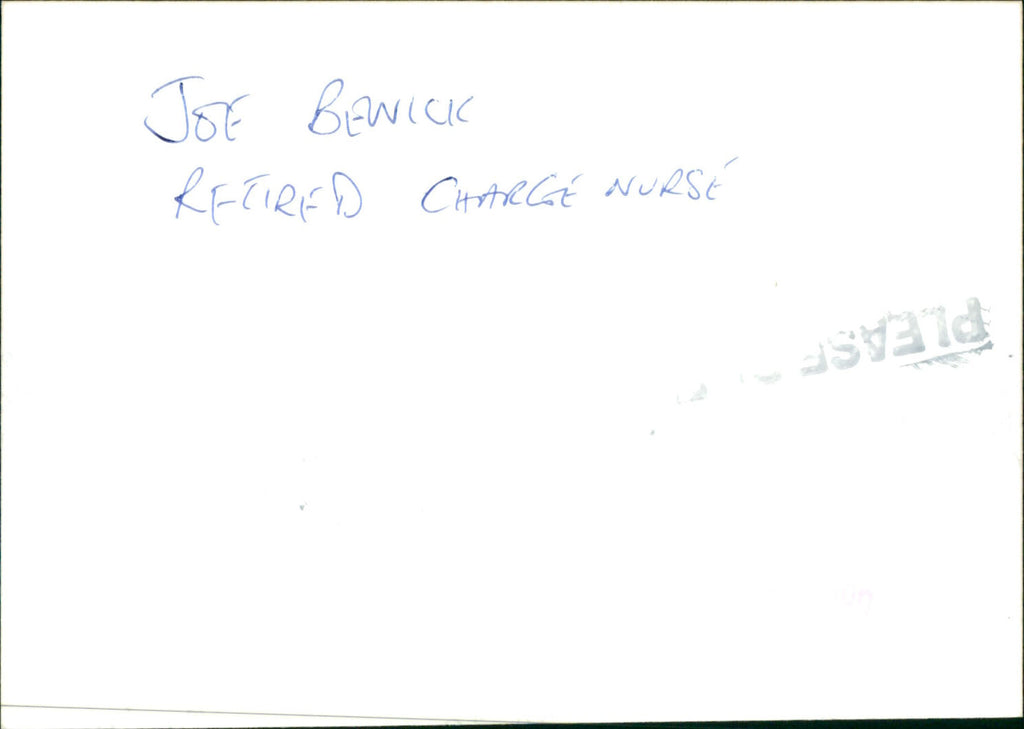 JOE BEWICK
RETIRED CHARGE NURSE
PLEASE